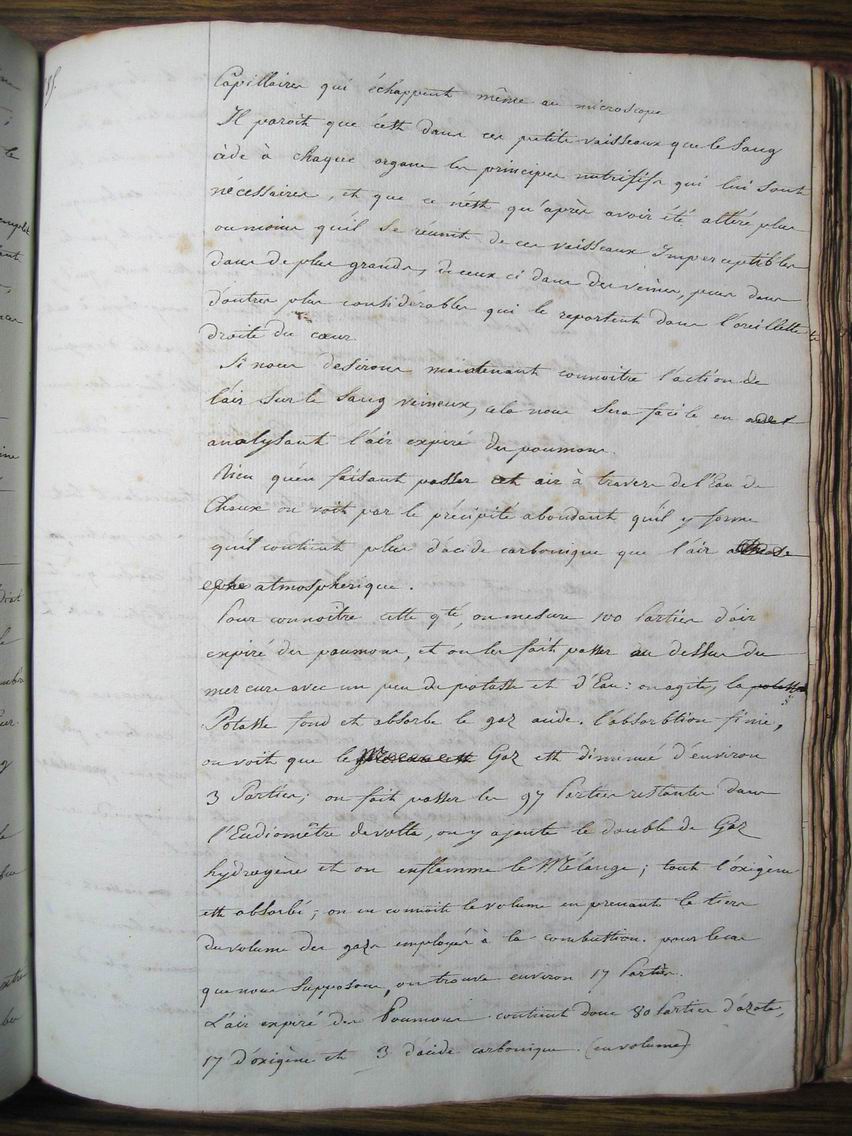 Capillaires qui échappent même au microscope
Il paroit que c'est dans ces petits vaisseaux que le Sang
cède à chaque organe les principes nutrififs qui lui sont
nécessaires, et que ce n'est qu'après avoir été altéré plus
ou moins qu'il se réunit de ces vaisseaux Imperceptibles
dans de plus grands, de ceux ci dans des veines, puis dans
d'autres plus considérables qui le reportent dans l'oreillette
droite du cœur
Si nous desirons maintenant connoitre l'action de
l'air sur le Sang veineux, cela nous sera facile en
analysant l'air expiré des poumons.
Rien qu'en faisant passer cet air à travers de l'Eau de
Chaux on voit par le précipité abondant qu'il y forme
qu'il contient plus d'acide carbonique que l'air
atmospherique.
Pour connoitre cette qté, on mesure 100 Parties d'air
expiré des poumons, et on les fait passer au dessus du
mercure avec un peu de potasse et d'Eau: on agite, la potasse
Potasse fond et absorbe le gaz acide. l'absorbtion finie,
on voit que le Gaz est diminué d'environ
3 Parties; on fait passer les 97 Parties restantes dans
l'Eudiomètre de volta, on y ajoute le double de Gaz
hydrogène et on enflamme le Mélange; tout l'oxigène
est absorbé; on en connoit le volume en prenant le tiers
du volume des gazs employés à la combustion. pour le cas
que nous supposons, on trouve environ 17 Parties.
L'air expiré des Poumons contient donc 80 Parties d'azote,
17 d'oxigène et 3 d'acide carbonique. (en volume)